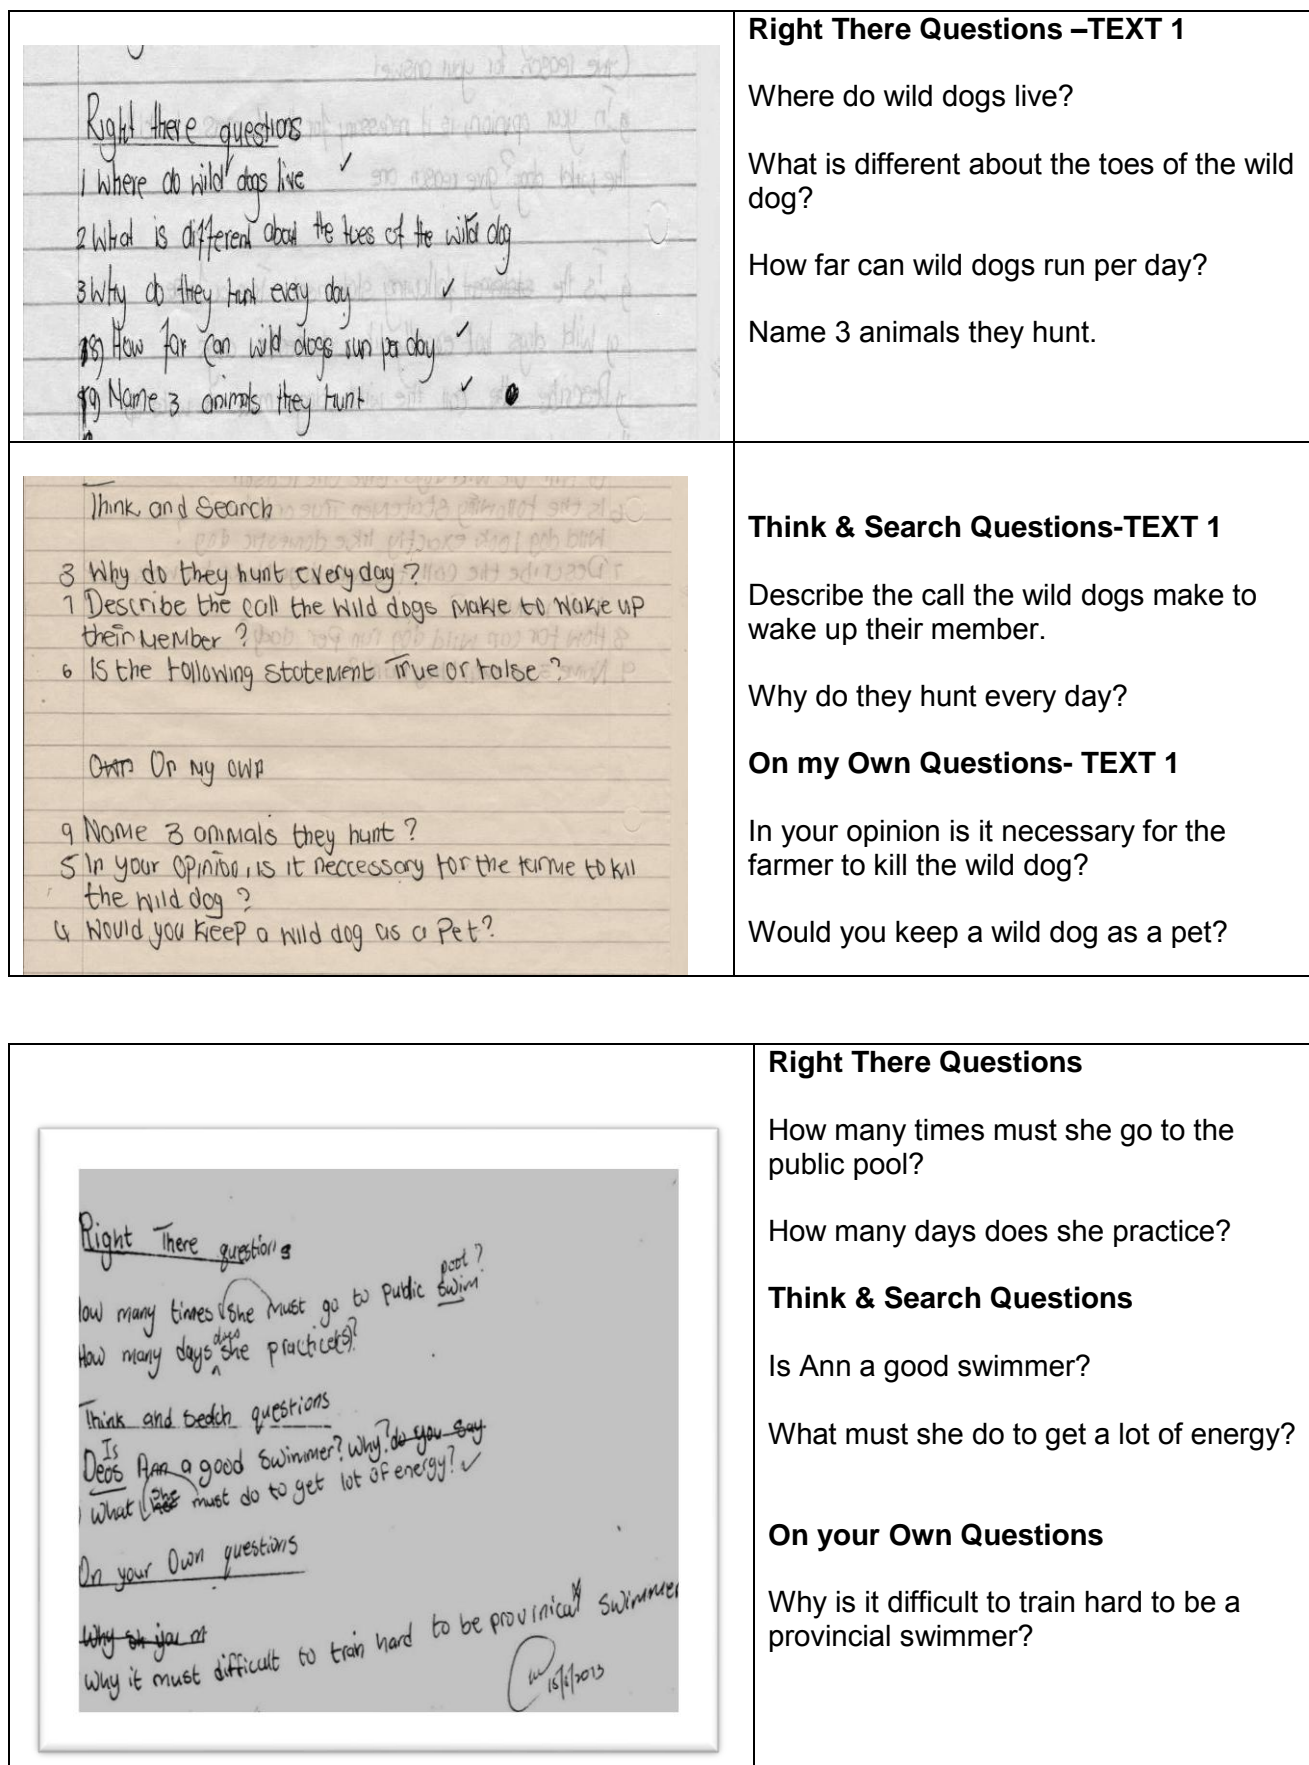 Right there questions
1 where do wild dogs live
2 What is different about the toes of the wild dog
3 Why do they hunt every day
8) How far can wild dogs run per day
9) Name 3 animals they hunt
Right There Questions –TEXT 1
Where do wild dogs live?
What is different about the toes of the wild
dog?
How far can wild dogs run per day?
Name 3 animals they hunt.
Think and Search
3 Why do they hunt every day ?
7 Describe the call the wild dogs make to wake up
their member ?
6 Is the following statement True or false ?
Own On my own
9 Name 3 animals they hunt ?
5 In your opinion, is it neccessary for the farme to kill
the wild dog ?
4 Would you keep a wild dog as a pet?
Think & Search Questions-TEXT 1
Describe the call the wild dogs make to
wake up their member.
Why do they hunt every day?
On my Own Questions- TEXT 1
In your opinion is it necessary for the
farmer to kill the wild dog?
Would you keep a wild dog as a pet?
Right There questions
pool?
How many times she must go to public swim
does
How many days she practice(s)?
Think and search questions
Is
Deos Ann a good swimmer? Why? do you say
she
What must do to get lot of energy?
On your Own questions
Why you
Why it must difficult to train hard to be provinical swimmer
15/6/2013
Right There Questions
How many times must she go to the
public pool?
How many days does she practice?
Think & Search Questions
Is Ann a good swimmer?
What must she do to get a lot of energy?
On your Own Questions
Why is it difficult to train hard to be a
provincial swimmer?